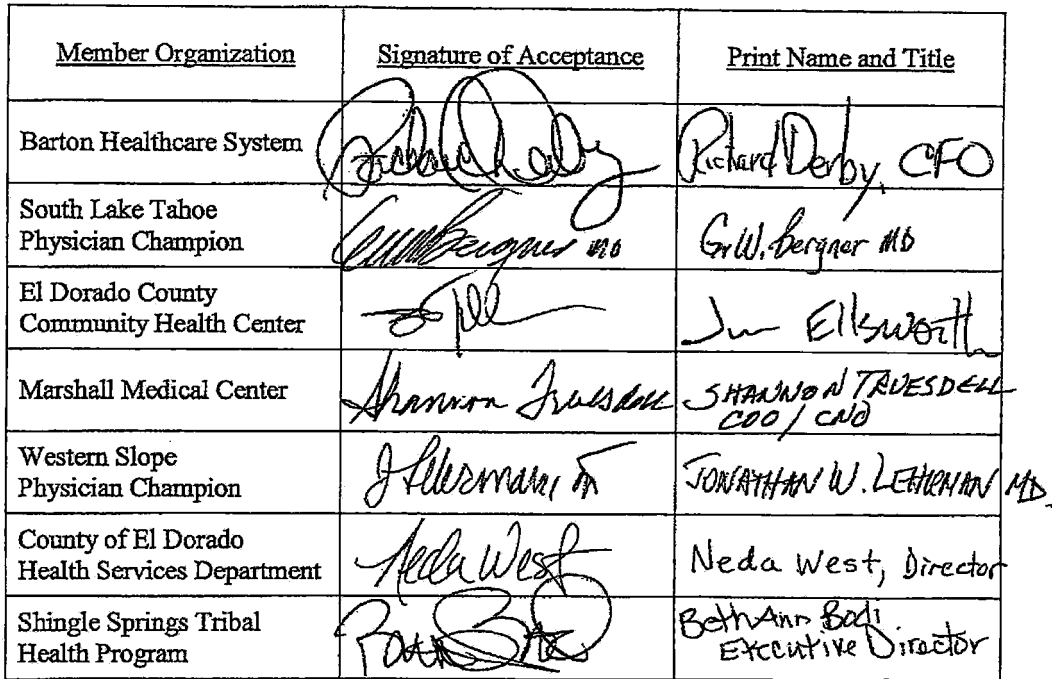 Member Organization Signature of Acceptance Print Name and Title
Barton Healthcare System Richard Derby Richard Derby, CFO
South Lake Tahoe
Physician Champion Bergner MD G.W. Bergner MD
El Dorado County
Community Health Center Ellsworth
Marshall Medical Center Shannon Truesdell SHANNON TRUESDELL
COO / CNO
Western Slope
Physician Champion JONATHAN W. LEHRMAN MD.
County of El Dorado
Health Services Department Neda West Neda West, Director
Shingle Springs Tribal BethAnn Bodi
Health Program Executive Director